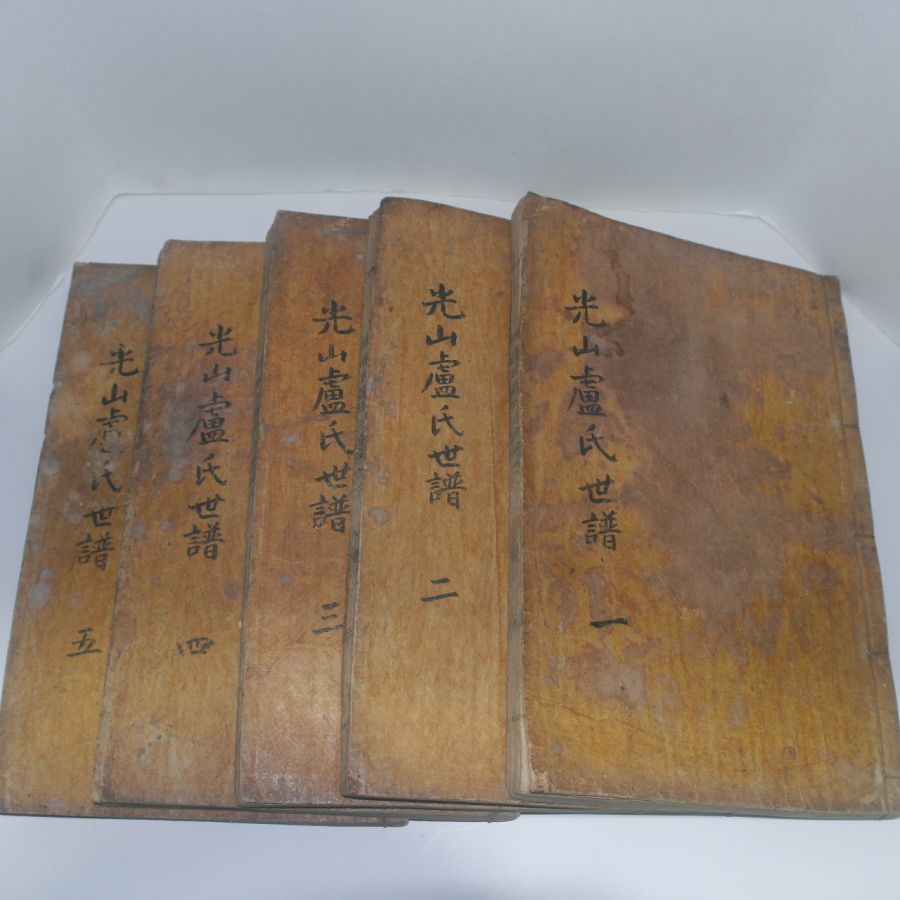 光山盧氏世譜 一
光山盧氏世譜 二
光山盧氏世譜 三
光山盧氏世譜 四
光山盧氏世譜 五